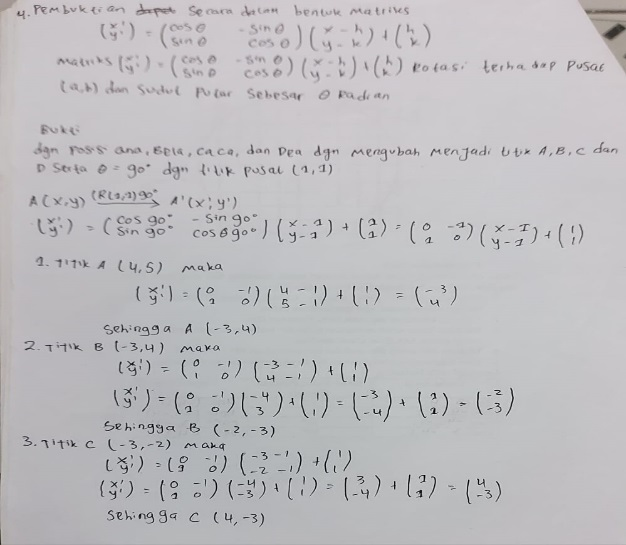 4. Pembuktian dapat Secara dalam bentuk Matriks
(x' y') = (cos θ - sin θ sin θ cos θ) (x - h y - k) + (h k)
matriks (x' y') = (cos θ - sin θ sin θ cos θ) (x - h y - k) + (h k) Rotasi terhadap Pusat
(a,b) dan Sudut Putar Sebesar θ Radian
Bukti
dgn Posisi ana, Bela, Caca, dan Dea dgn Mengubah Menjadi titik A, B, C dan
D Serta θ = 90° dgn titik pusat (1,1)
A(x,y) (R(1,1)90°) → A'(x',y')
(x' y') = (cos 90° - sin 90° sin 90° cos θ 90°) (x - 1 y - 1) + (1 1) = (0 -1 1 0) (x - 1 y - 1) + (1 1)
1. Titik A (4,5) maka
(x' y') = (0 -1 1 0) (4 - 1 5 - 1) + (1 1) = (-3 4)
Sehingga A (-3,4)
2. Titik B (-3,4) maka
(x' y') = (0 -1 1 0) (-3 - 1 4 - 1) + (1 1)
(x' y') = (0 -1 1 0) (-4 3) + (1 1) = (-3 -4) + (1 1) = (-2 -3)
Sehingga B (-2,-3)
3. Titik C (-3,-2) maka
(x' y') = (0 -1 1 0) (-3 - 1 -2 - 1) + (1 1)
(x' y') = (0 -1 1 0) (-4 -3) + (1 1) = (3 -4) + (1 1) = (4 -3)
Sehingga C (4,-3)